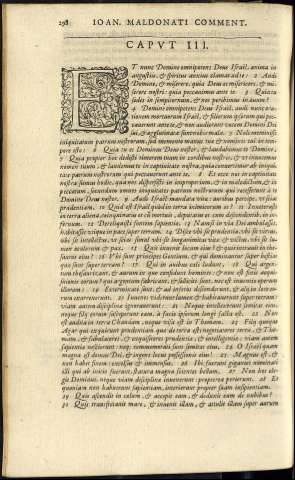 298 IOAN. MALDONATI COMMENT.
CAPVT III.
ET nunc Domine omnipotens Deus Israël, anima in
angustiis, & spiritus anxius clamat ad te: 2 Audi
Domine, & miserere, quia Deus es misericors, & mi-
serere nostri: quia peccauimus ante te. 3 Quia tu
sedes in sempiternum, & nos peribimus in æuum?
4 Domine omnipotens, Deus Israël, audi nunc ora-
tionem mortuorum Israël, & filiorum ipsorum qui pec-
cauerunt ante te, & non audierunt vocem Domini Dei
sui, & agglutinata sunt nobis mala. 5 Noli meminisse
iniquitatum patrum nostrorum, sed memento manus tuæ & nominis tui in tem-
pore isto: 6 Quia tu es Dominus Deus noster, & laudabimus te Domine:
7 Quia propter hoc dedisti timorem tuum in cordibus nostris, & vt inuocemus
nomen tuum, & laudemus te in captiuitate nostra, quia conuertimur ab iniqui-
tate patrum nostrorum qui peccauerunt ante te. 8 Et ecce nos in captiuitate
nostra sumus hodie, qua nos dispersisti in improperium, & in maledictum, & in
peccatum, secundum omnes iniquitates patrum nostrorum qui recesserunt à te
Domine Deus noster. 9 Audi Israël mandata vitæ: auribus percipe, vt scias
prudentiam. 10 Quid est Israël quòd in terra inimicorum es? 11 Inueterasti
in terra aliena, coinquinatus es cum mortuis, deputatus es cum descendentibus in in-
fernum. 12 Dereliquisti fontem sapientiæ. 13 Nam si in via Dei ambulasses,
habitasses vtique in pace super terram. 14 Disce vbi sit prudentia, vbi sit virtus,
vbi sit intellectus, vt scias simul vbi sit longiturnitas vitæ & victus, vbi sit lu-
men oculorum & pax. 15 Quis inuenit locum eius? & quis intrauit in the-
sauros eius? 16 Vbi sunt principes Gentium, & qui dominantur super bestias
quæ sunt super terram? 17 Qui in auibus cæli ludunt, 18 Qui argen-
tum thesaurizant, & aurum in quo confidunt homines, & non est finis acqui-
sitionis eorum? qui argentum fabricant, & solliciti sunt, nec est inuentio operum
illorum? 19 Exterminati sunt, & ad inferos descenderunt, & alij in locum
eorum exsurrexerunt. 20 Iuuenes viderunt lumen, & habitauerunt super terram:
viam autem disciplinæ ignorauerunt: 21 Neque intellexerunt semitas eius,
neque filij eorum susceperunt eam, à facie ipsorum longè facta est. 22 Non
est audita in terra Chanaan, neque visa est in Theman. 23 Filij quoque
Agar qui exquirunt prudentiam quæ de terra est, negotiatores terræ, & The-
man, & fabulatores, & exquisitores prudentiæ & intelligentiæ: viam autem
sapientiæ nescierunt, neq; commemorati sunt semitas eius. 24 O Israël quàm
magna est domus Dei, & ingens locus possessionis eius! 25 Magnus est, &
non habet finem: excelsus & immensus. 26 Ibi fuerunt gigantes nominati
illi qui ab initio fuerunt, statura magna scientes bellum. 27 Non hos ele-
git Dominus, neque viam disciplinæ inuenerunt: propterea perierunt. 28 Et
quoniam non habuerunt sapientiam, interierunt propter suam insipientiam.
29 Quis ascendit in cælum, & accepit eam, & deduxit eam de nubibus?
30 Quis transfretauit mare, & inuenit illam, & attulit illam super aurum